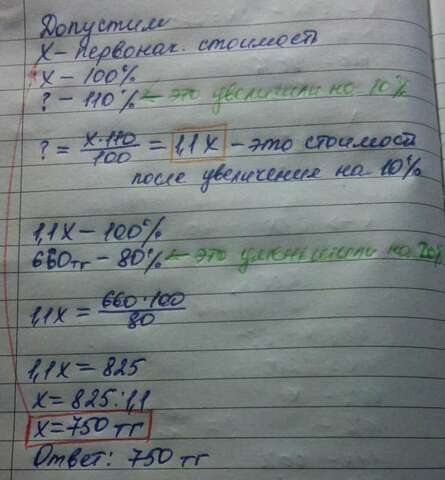 Допустим
X - первонач. стоимость
X - 100%
? - 110% ← это увеличили на 10%
? = X·110/100 = 1,1X - это стоимость
после увеличения на 10%
1,1X - 100%
660тг - 80% ← это уменьшили на 20%
1,1X = 660·100/80
1,1X = 825
X = 825:1,1
X = 750 тг
Ответ: 750 тг